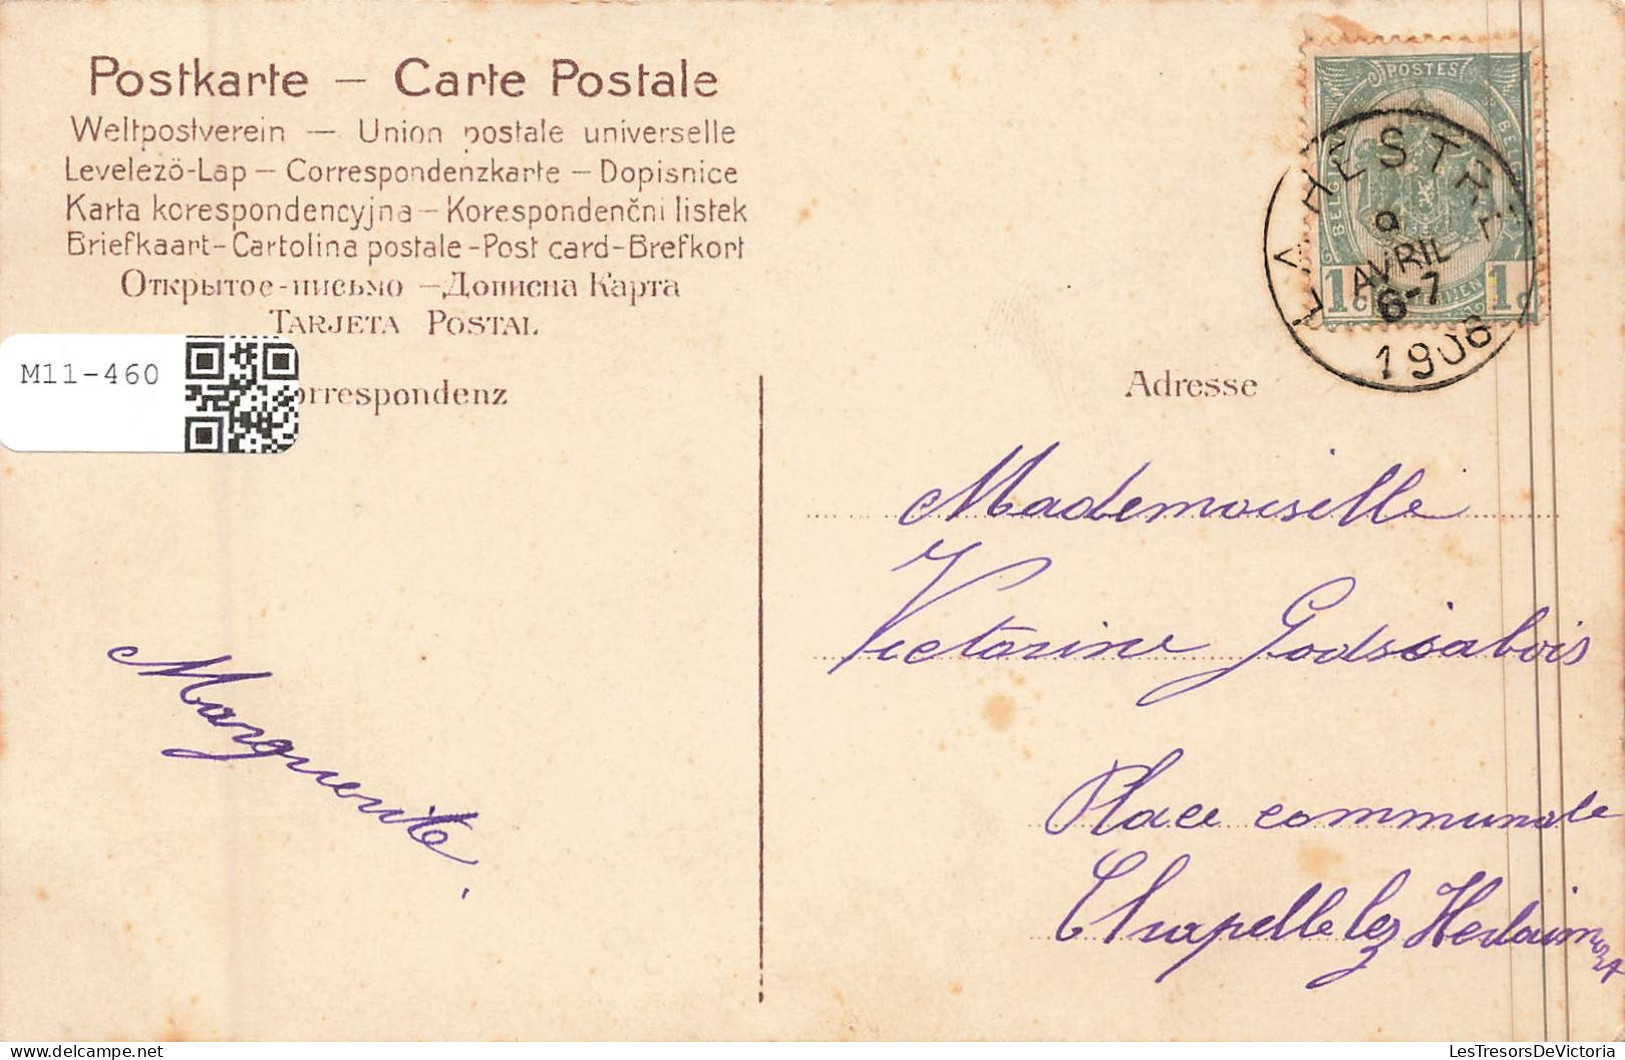 Postkarte – Carte Postale
Weltpostverein — Union postale universelle
Levelezö-Lap – Correspondenzkarte – Dopisnice
Karta korespondencyjna – Korespondenčni listek
Briefkaart-Cartolina postale-Post card-Brefkort
Открытое-письмо —Дописна Карта
TARJETA POSTAL
M11-460
orrespondenz
Adresse
POSTES
1c
1c
LA HESTRE
9
AVRIL
6-7
1906
Mademoiselle
Victorine Godssabois
Place communale
Chapelle lez Herlaimont
Marguerite
LesTresorsDeVictoria